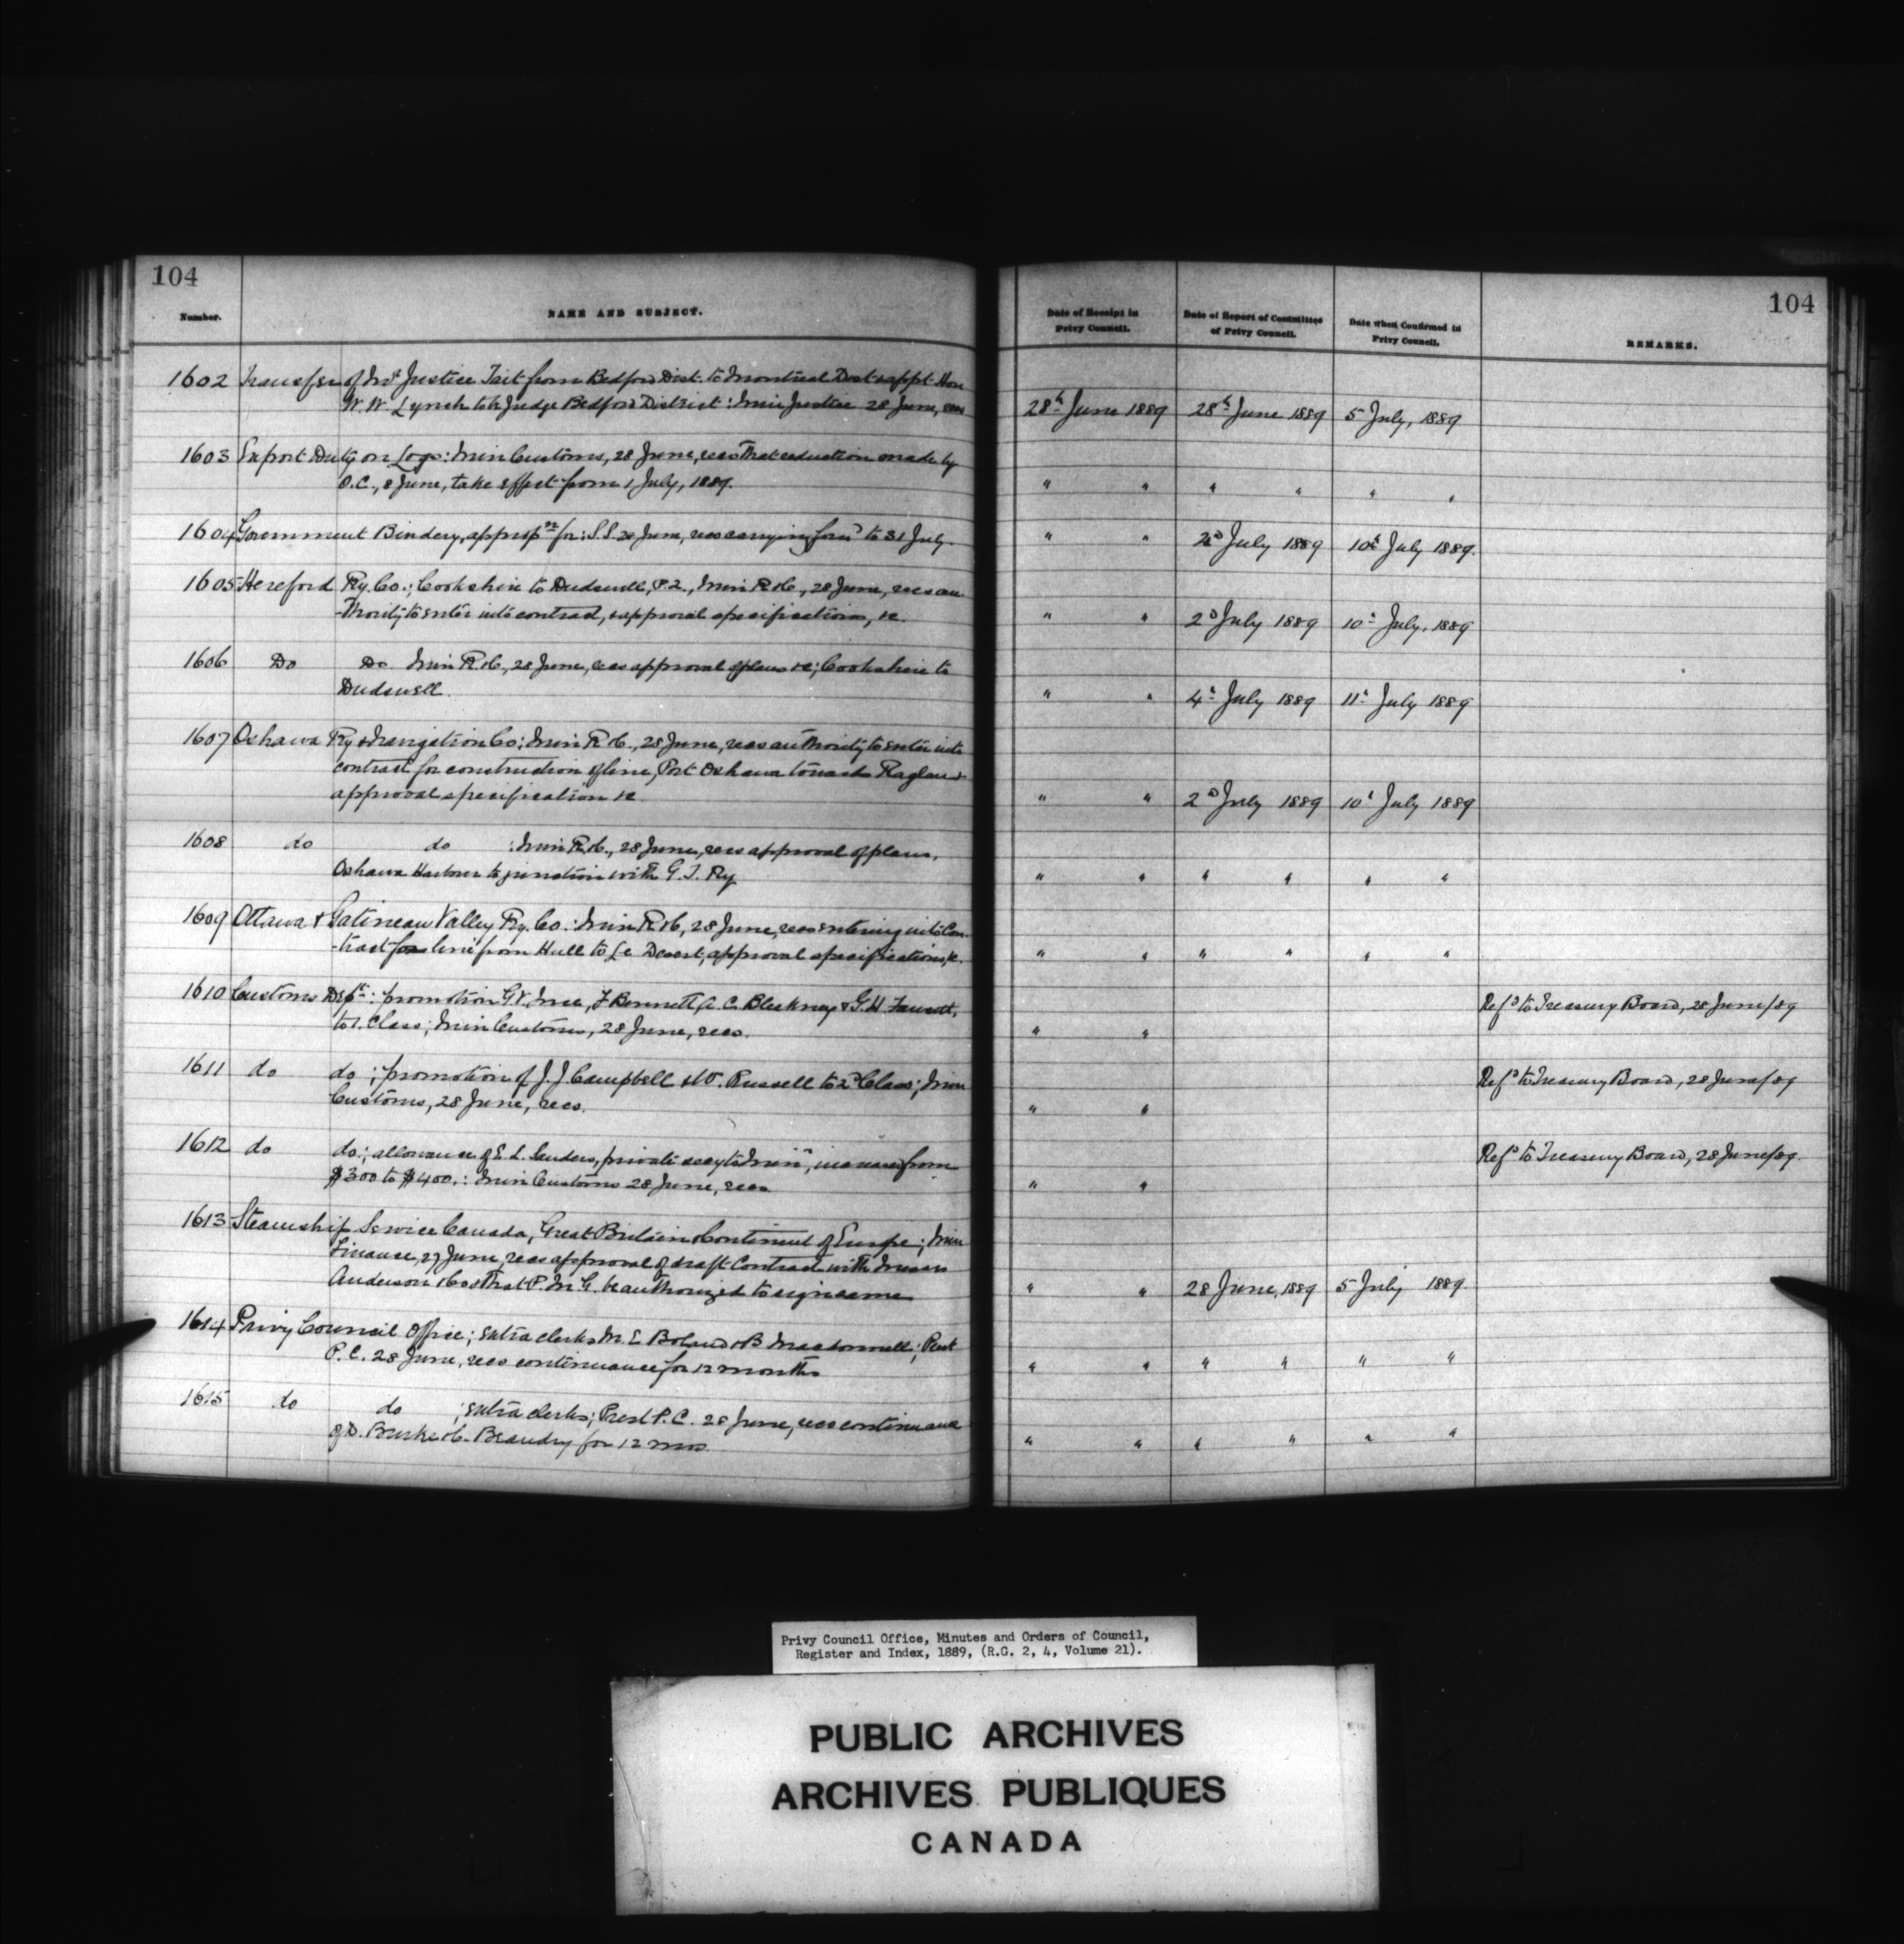 104
104
Number.
NAME AND SUBJECT.
Date of Receipt in
Privy Council.
Date of Report of Committee
of Privy Council.
Date when Confirmed in
Privy Council.
REMARKS.
1602 Transfer of Mr Justice Tait from Bedford Dist. to Montreal Dist & appt Hon
W. W. Lynch to be Judge Bedford District : Min Justice 28 June, recs 28th June 1889 28th June 1889 5 July, 1889
1603 Export Duty on Logs: Min Customs, 28 June, recs that reduction made by
O.C., 8 June, take effect from 1 July, 1889. " " " " " "
1604 Government Bindery, approp'n for: S.S. 28 June, recs carrying forwd to 31 July. " " 2d July 1889 10th July 1889.
1605 Hereford Ry. Co.; Cookshire to Dudswell, P.Q., Min R & C, 28 June, recs au-
-thority to enter into contract, & approval specifications, &c. " " 2d July 1889 10th July, 1889
1606 Do Do Min R & C, 28 June, recs approval of plans &c; Cookshire to
Dudswell. " " 4th July 1889 11th July 1889
1607 Oshawa Ry & Navigation Co; Min R & C., 28 June, recs authority to enter into
contract for construction of line, Port Oshawa towards Raglan &
approval specification &c " " 2d July 1889 10th July 1889
1608 do do : Min R & C., 28 June, recs approval of plans,
Oshawa Harbour to junction with G. T. Ry " " " " " "
1609 Ottawa & Gatineau Valley Ry. Co.: Min R & C, 28 June, recs entering into Con-
-tract for line from Hull to Le Desert, approval specifications, &c. " " " " " "
1610 Customs Dept: promotion G.V. F Bennett, A. C. Bleakney & G. H Fawcett,
to 1. Class; Min Customs, 28 June, recs. " " Refd to Treasury Board, 28 June/89
1611 do do ; promotion of J. J Campbell & W. Russell to 2d Class; Min
Customs, 28 June, recs. " " Refd to Treasury Board, 28 June/89
1612 do do; allowance of E. L. Sanders, private secy to Minr, increased from
$300 to $400.: Min Customs 28 June, recs " " Refd to Treasury Board, 28 June/89.
1613 Steamship Service Canada, Great Britain & Continent of Europe; Min
Finance, 27 June, recs approval of draft Contract with Messrs
Anderson & Co & that P. M. G. be authorized to sign same " " 28 June, 1889 5 July 1889.
1614 Privy Council Office; extra clerks M. E Boland & B Macdonnell; Prest
P. C. 28 June, recs continuance for 12 months " " " " " "
1615 do do ; extra clerks; Prest P. C. 28 June, recs continuance
of D. Burke & C. Beaudry for 12 mos " " " " " "
Privy Council Office, Minutes and Orders of Council,
Register and Index, 1889, (R.G. 2, 4, Volume 21).
PUBLIC ARCHIVES
ARCHIVES PUBLIQUES
CANADA